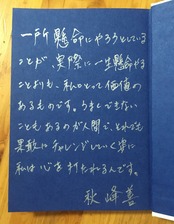 一所懸命にやろうとしている
ことが、実際に一生懸命やる
ことよりも、私にとって価値の
あるものです。うまくできない
こともあるのが人間で、それでも
果敢にチャレンジしていく姿に
私は心を打たれるんです。
秋 峰善